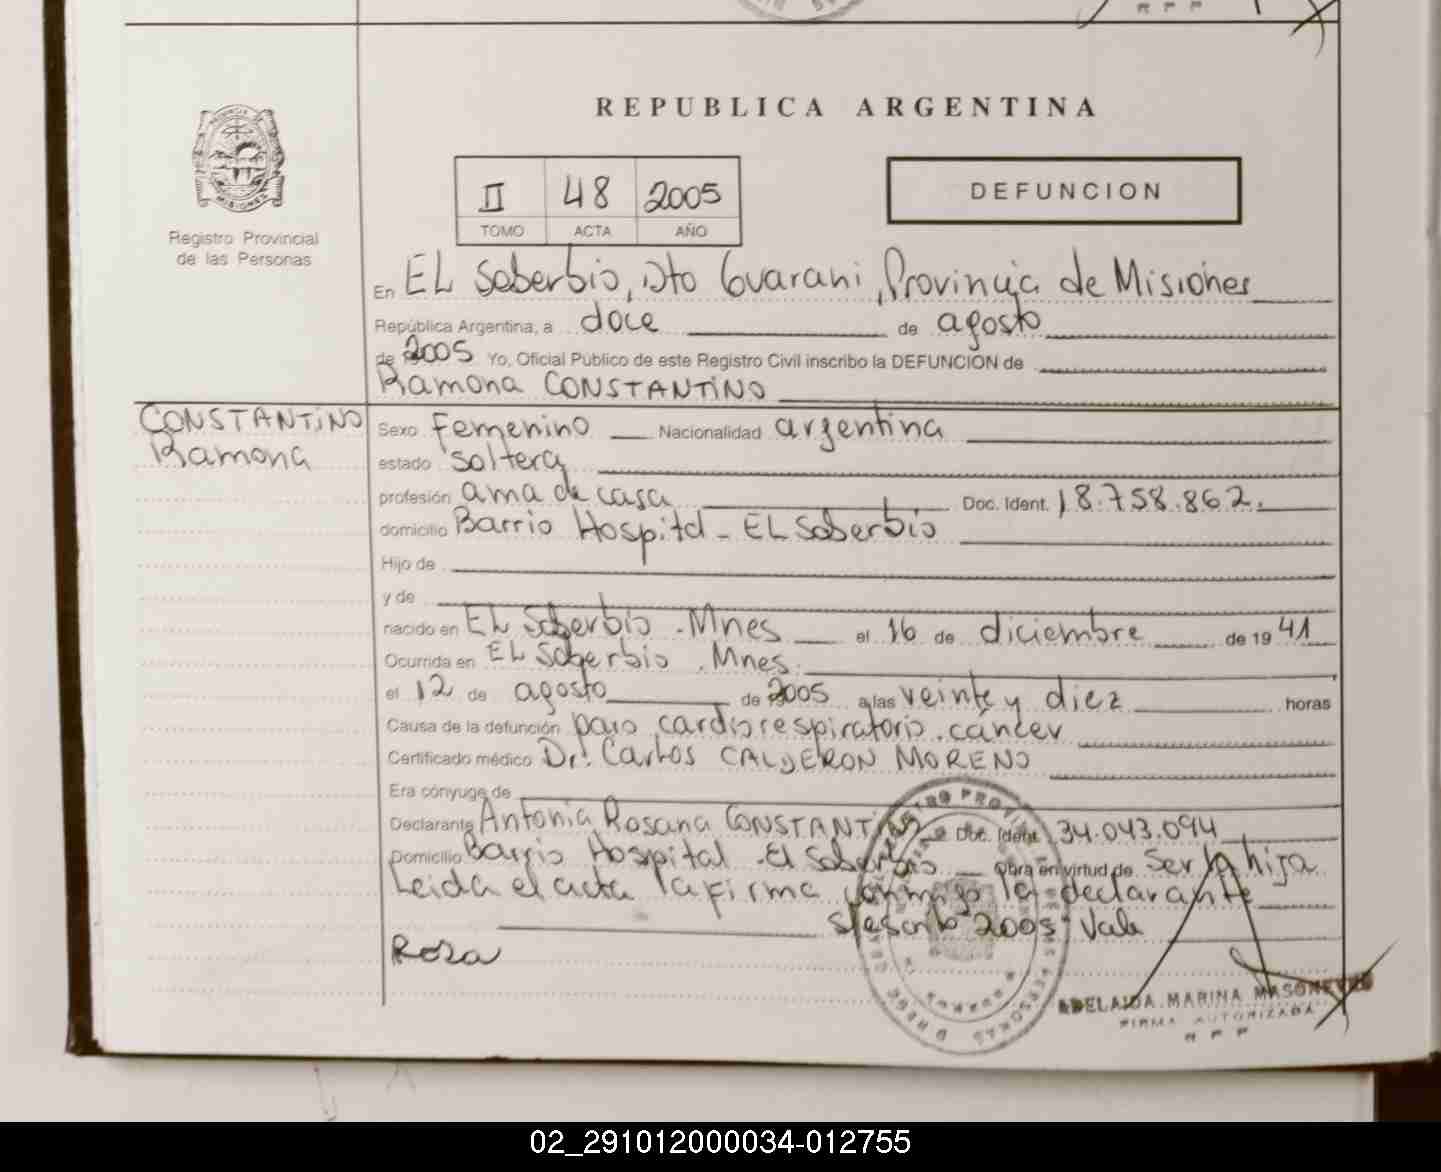 REPUBLICA ARGENTINA
PROVINCIA DE
MISIONES
Registro Provincial
de las Personas
II 48 2005
TOMO ACTA AÑO
DEFUNCION
En EL Soberbio, Dto Guarani, Provincia de Misiones
República Argentina, a doce de agosto
de 2005 Yo, Oficial Público de este Registro Civil inscribo la DEFUNCION de
Ramona CONSTANTINO
CONSTANTINO
Ramona
Sexo Femenino Nacionalidad argentina
estado soltera
profesión ama de casa Doc. Ident. 18.758.862.
domicilio Barrio Hospital - EL Soberbio
Hijo de
y de
nacido en EL Soberbio - Mnes el 16 de diciembre de 1941
Ocurrida en EL Soberbio . Mnes.
el 12 de agosto de 2005 a las veinte y diez horas
Causa de la defunción paro cardiorespiratorio . cáncer
Certificado médico Dr. Carlos CALDERON MORENO
Era cónyuge de
Declarante Antonia Rosana CONSTANTINO Doc. Ident. 34.043.094
Domicilio Barrio Hospital - El Soberbio Obra en virtud de Ser la hija
Leida el acta la firma conmigo la declarante
s/escrito 2005 Vale
Rosa
ADELAIDA MARINA
FIRMA AUTORIZADA
R P P
02_291012000034-012755